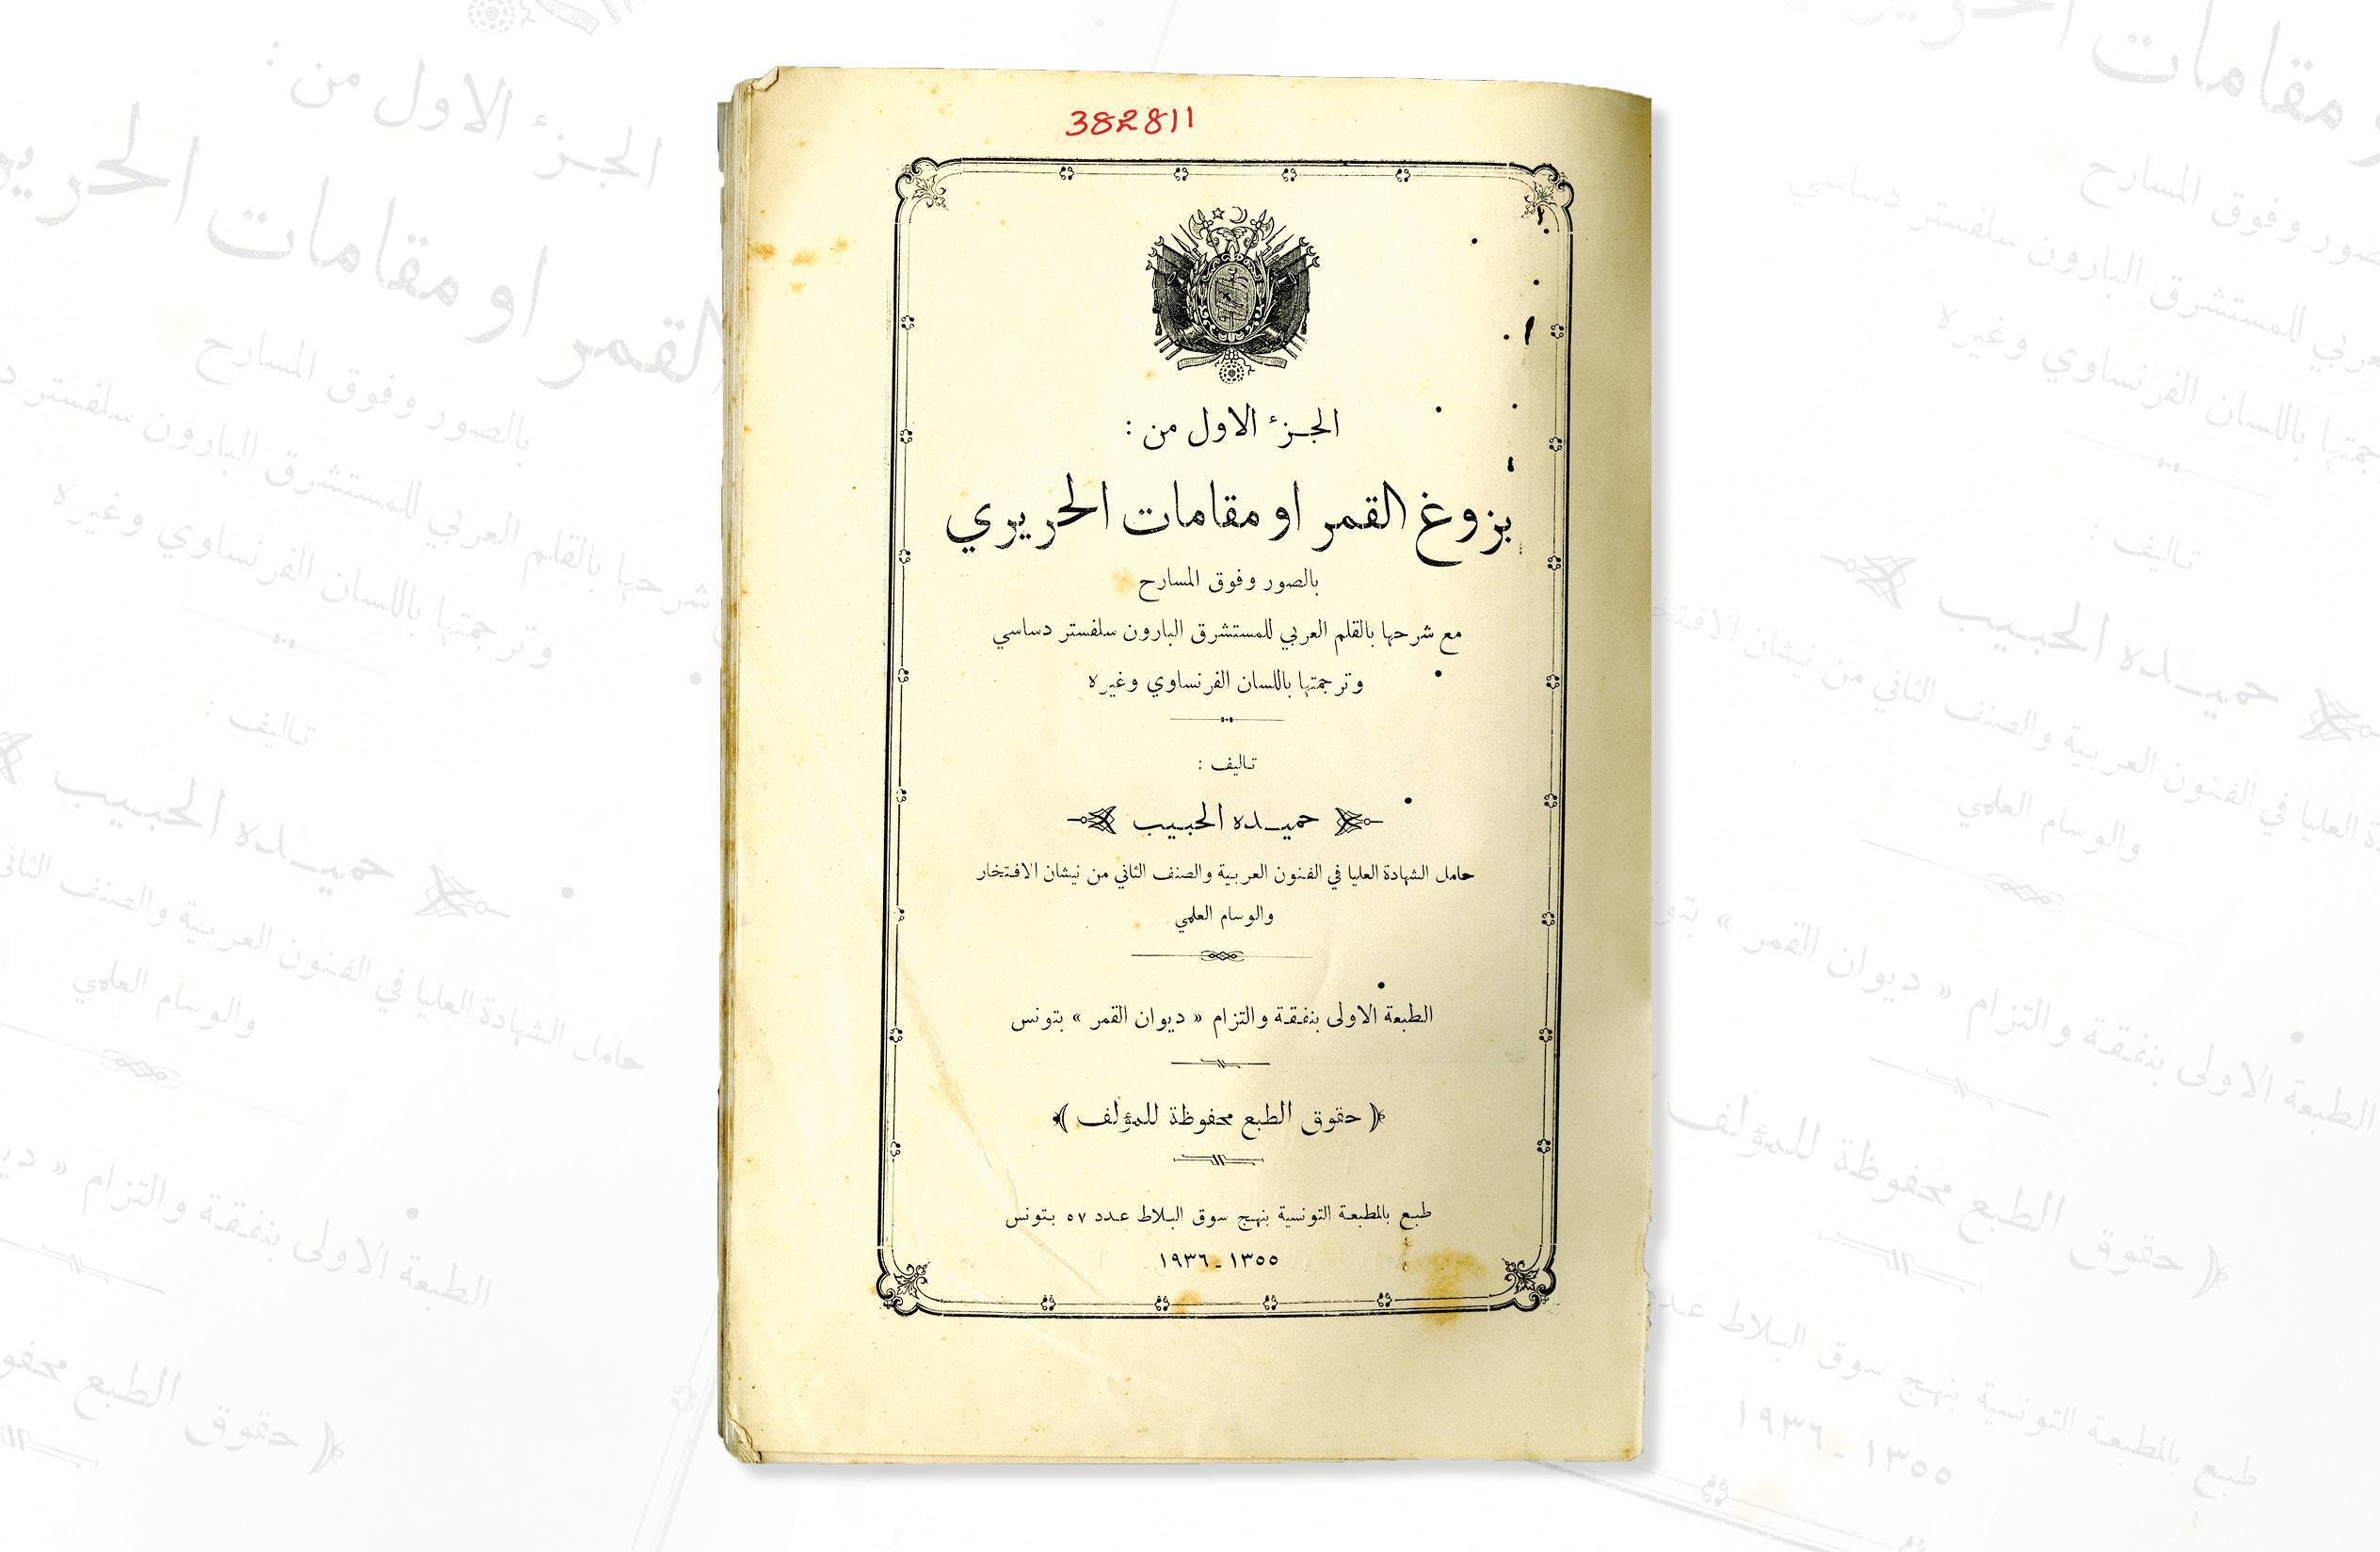 382811
الجزء الاول من :
بزوغ القمر او مقامات الحريري
بالصور وفوق المسارح
مع شرحها بالقلم العربي للمستشرق البارون سلفستر دساسي
وترجمتها باللسان الفرنساوي وغيره
تاليف :
حميده الحبيب
حامل الشهادة العليا في الفنون العربية والصنف الثاني من نيشان الافتخار
والوسام العلمي
الطبعة الاولى بنفقة والتزام « ديوان القمر » بتونس
﴿ حقوق الطبع محفوظة للمؤلف ﴾
طبع بالمطبعة التونسية بنهج سوق البلاط عدد ٥٧ بتونس
١٣٥٥ - ١٩٣٦